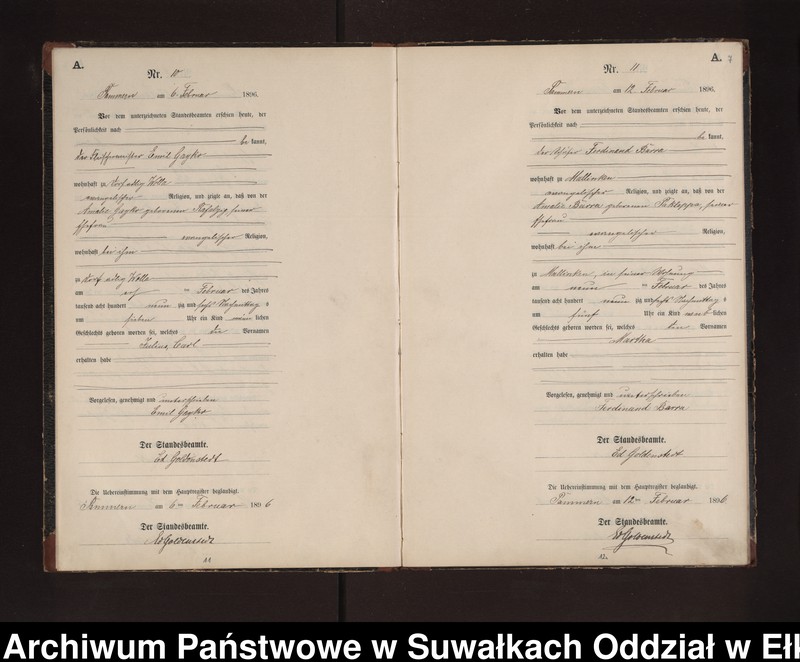 A.
Nr. 10
am 6 Februar 1896.
Vor dem unterzeichneten Standesbeamten erschien heute, der
Persönlichkeit nach
be kannt,
Emil Gayko
wohnhaft zu
evangelischer Religion, und zeigte an, daß von der
Amalie Gayko geborenen
Ehefrau
evangelischer Religion,
wohnhaft bei ihm
zu
am ten Februar des Jahres
tausend acht hundert neun zig und sechs Nachmittag s
um sieben Uhr ein Kind männ lichen
Geschlechts geboren worden sei, welches die Vornamen
Julius, Carl
erhalten habe
Vorgelesen, genehmigt und unterschrieben
Emil Gayko
Der Standesbeamte.
Ed Goldenstedt
Die Uebereinstimmung mit dem Hauptregister beglaubigt.
am 6ten Februar 1896
Der Standesbeamte.
Ed Goldenstedt
A. 7
Nr. 11
am 12 Februar 1896.
Vor dem unterzeichneten Standesbeamten erschien heute, der
Persönlichkeit nach
be kannt,
Ferdinand Barra
wohnhaft zu Mallinken
evangelischer Religion, und zeigte an, daß von der
Amalie Barra geborenen seiner
Ehefrau
evangelischer Religion,
wohnhaft bei ihm
zu Mallinken, in seiner Wohnung
am neunten Februar des Jahres
tausend acht hundert neun zig und sechs Nachmittag s
um fünf Uhr ein Kind weib lichen
Geschlechts geboren worden sei, welches den Vornamen
Martha
erhalten habe
Vorgelesen, genehmigt und unterschrieben
Ferdinand Barra
Der Standesbeamte.
Ed Goldenstedt
Die Uebereinstimmung mit dem Hauptregister beglaubigt.
am 12ten Februar 1896
Der Standesbeamte.
Ed Goldenstedt
Archiwum Państwowe w Suwałkach Oddział w Ełk